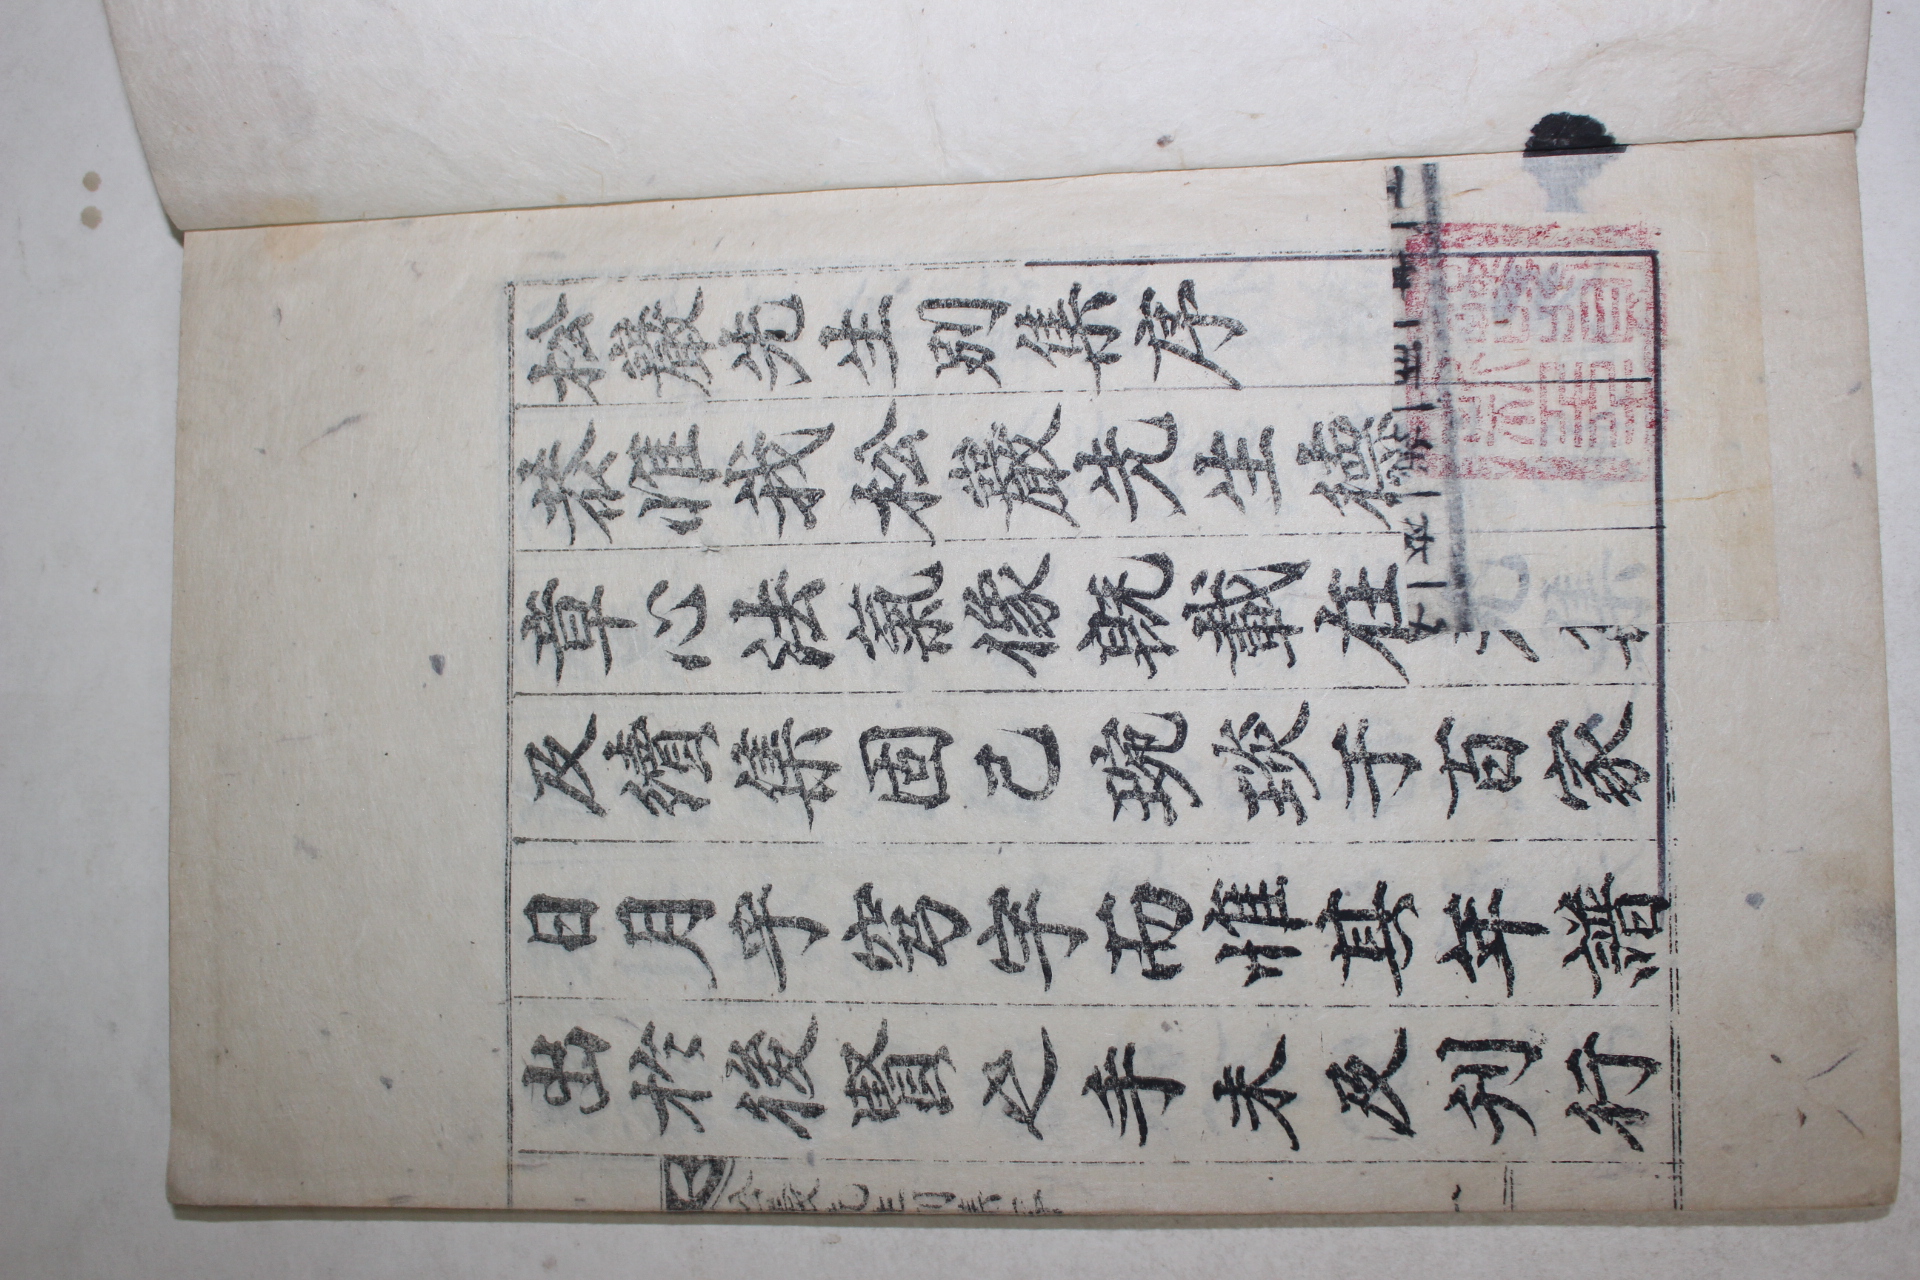 松巖先生別集序
恭惟我松巖先生德
章心法氣像旣載在元集
及續集固已琬琰于百家
日月乎穹宇而惟其年譜
出於後賢之手未及刊行
松巖先生別集序